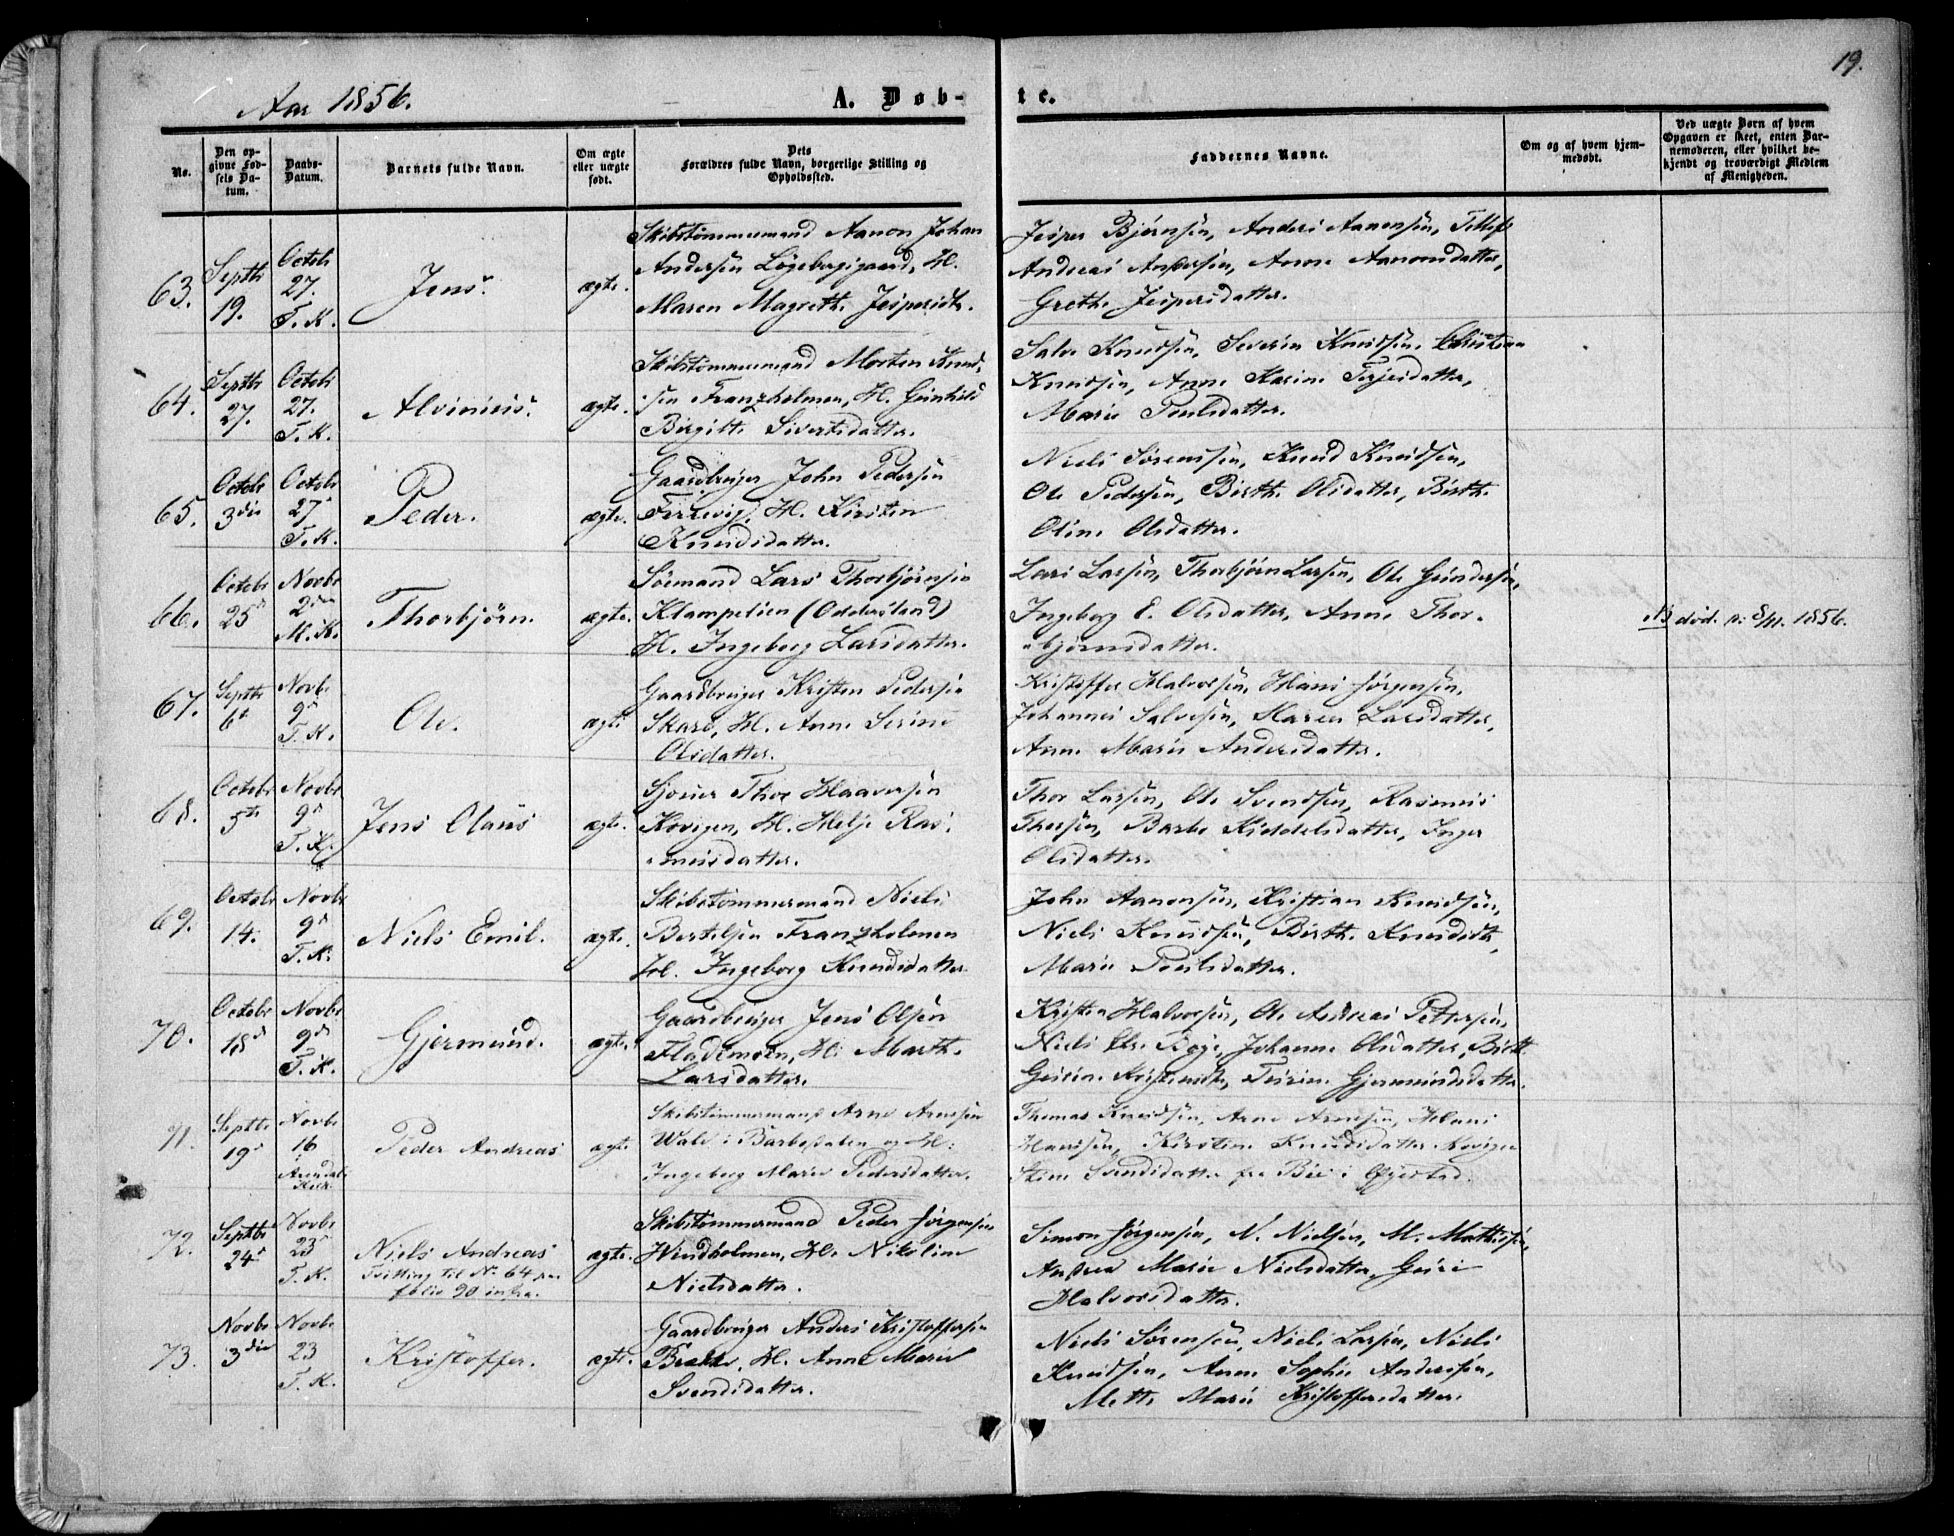 19.
Aar 1856.
A. Døb-
te.
No.
Den op-
givne Fød-
sels Da-
tum.
Daabs-
Datum.
Barnets fulde Navn.
Om ægte
eller uægte
født.
Dets
Forældres fulde Navn, borgerlige Stilling og
Opholdssted.
Faddernes Navne.
Om og af hvem hjem-
medøbt.
Ved uægte Børn af hvem
Opgaven er skeet, enten Bar-
nemoderen, eller hvilket be-
kjendt og troværdigt Medlem
af Menigheden.
63.
Septbr
19.
Octobr
27.
T. K.
Jens.
ægte.
Skibstømmermand Aanon Johan
Andersen Løgebergsgaard, H.
Maren Magrethe Jespersdtr.
Jesper Bjørnsen, Anders Aanonsen, Tellef
Andreas Andersen, Anne Aanonsdatter,
Grethe Jespersdatter.
64.
Septbr
27.
Octobr
27.
T. K.
Alvinius.
ægte.
Skibstømmermand Morten Knud-
sen Franzholmen, H. Gunhild
Birgitte Sivertsdatter.
Salve Knudsen, Severin Knudsen, Christian
Knudsen, Anne Karine Terjesdatter,
Marie Poulsdatter.
65.
Octobr
3die
Octobr
27
T. K.
Peder.
ægte.
Gaardbruger John Pedersen
H. Kirsten
Knudsdatter.
Niels Sørensen, Knud Knudsen,
Ole Pedersen, Birthe Olsdatter, Birthe
Oline Olsdatter.
66.
Octobr
25
Novbr
2den
M. K.
Thorbjørn.
ægte.
Sømand Lars Thorbjørnsen
Klampelien (Oddersland)
H. Ingeborg Larsdatter.
Lars Larsen, Thorbjørn Larsen, Ole Gundersen,
Ingeborg E. Olsdatter, Anne Thor-
bjørnsdatter.
NB død. p: 8/11. 1856.
67.
Septbr
6te
Novbr
9
T. K.
Ole.
ægte
Gaardbruger Kristen Pedersen
Skare, H. Anne Serine
Olsdatter.
Kristoffer Halvorsen, Hans Jørgensen,
Johannes Salvesen, Maren Larsdatter,
Anne Marie Andersdatter.
68.
Octobr
5te
Novbr
9
T. K.
Jens Olaus
ægte.
Thor Haaversen
Kovigen, H. Helje Ras-
musdatter.
Thor Larsen, Ole Svendsen, Rasmus
Thorsen, Barbo Kiddelsdatter, Inger
Olsdatter.
69.
Octobr
14.
Novbr
9
T. K.
Niels Emil.
ægte.
Skibstømmermand Niels
Bertelsen Franzholmen
H. Ingeborg Knudsdatter
John Aanonsen, Kristian Knudsen,
Niels Knudsen, Birthe Knudsdtr,
Marie Poulsdatter.
70.
Octobr
18
Novbr
9
T. K.
Gjermund.
ægte.
Gaardbruger Jens Olsen
Flademoen, H. Marthe
Larsdatter.
Kristen Halvorsen, Ole Andreas Pettersen,
Niels Chr. Bøge, Johanne Olsdatter, Birthe
Gjermundsdatter.
71.
Septbr
19
Novbr
16
Arendals
Kirk.
Peder Andreas
ægte
Skibstømmermand Arne Arnesen
Wold i Barbodalen og H:
Ingeborg Marie Pedersdatter.
Thomas Knudsen, Arne Arnesen, Hans
Hansen, Kirstine Knudsdatter Kovigen
Svendsdatter fra Bie i Øyestad.
72.
Septbr
24
Novbr
23
T. K.
Niels Andreas
Tvilling til No 64 paa
folio 90 infra.
ægte.
Skibstømmermand Peder Jørgensen
Windholmen, H. Nikoline
Nielsdatter.
Simon Jørgensen, N. Nielsen, M. Mathisen,
Andrea Marie Nielsdatter, Guri
Halvorsdatter.
73.
Novbr
3die
Novbr
23
T. K.
Kristoffer.
ægte.
Gaardbruger Anders Kristoffersen
Bratte, H. Anne Marie
Svendsdatter.
Niels Sørensen, Niels Larsen, Niels
Knudsen, Anne Sophie Andersen,
Mette Marie Kristoffersdatter.